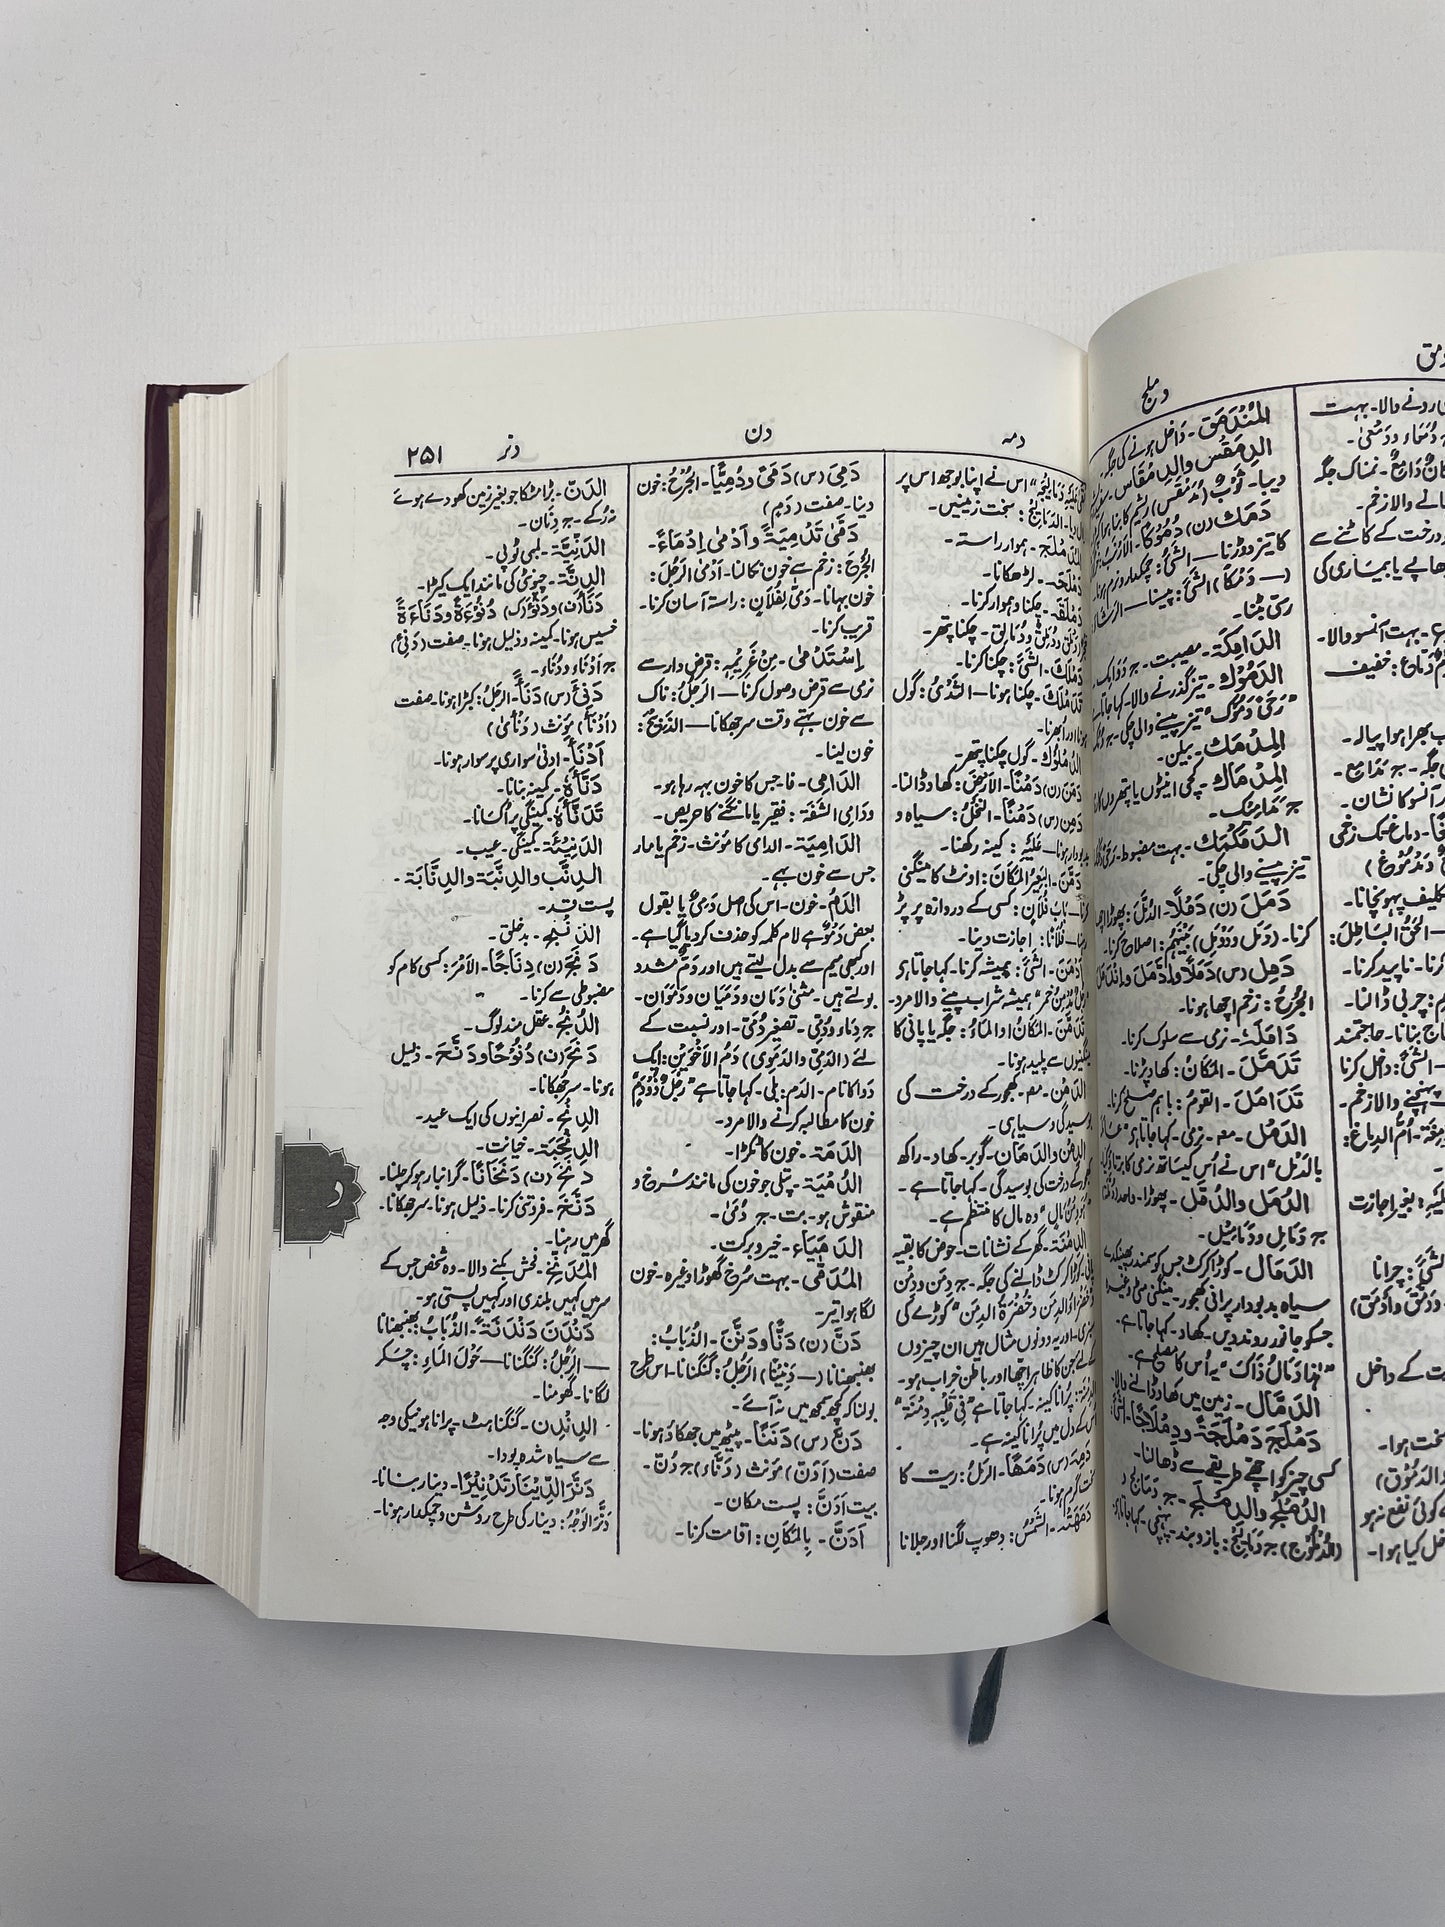 دمہ
دن
دنر
۲۵۱
اس نے اپنا بوجھ اس پر
سخت زمینیں۔
ہموار راستہ۔
دَمْلَحَہ۔ لڑھکانا۔
دَمْلَقَہ۔ چکنا و ہموار کرنا۔
چکنا پتھر۔
دَمْلَكَ۔ الشَّیْءَ: چکنا کرنا۔
تَدَمْلَكَ۔ چکنا ہونا—الثَّدْیُ: گول
ہونا اور ابھرنا۔
الدُّمْلُوْك۔ گول چکنا پتھر۔
دَمَنَ (ن) دَمْنًا۔ الاَرْضَ: کھاد ڈالنا۔
دَمِنَ (س) دَمَنًا۔ النَّخْلُ: سیاہ و
بدبودار ہونا—عَلَیْہِ: کینہ رکھنا۔
دَمَّنَ۔ البَعِیْرُ المَکَانَ: اونٹ کا مینگنی
کرنا—بَابَ فُلَانٍ: کسی کے دروازہ پر پڑ
رہنا—فُلَانًا: اجازت دینا۔
اَدْمَنَ۔ الشَّیْءَ: ہمیشہ کرنا۔ کہا جاتا ہے
ہمیشہ شراب پینے والا مرد۔
تَدَمَّنَ۔ المَکَانُ اوالمَاءُ: جگہ یا پانی کا
مینگنیوں سے پلید ہونا۔
الدَّمْن۔ مص۔ کھجور کے درخت کی
بوسیدگی و سیاہی۔
الدِّمْن والدَّمَان۔ گوبر۔ کھاد۔ راکھ
کھجور کے درخت کی بوسیدگی۔ کہا جاتا ہے۔
وہ مال کا منتظم ہے۔
الدِّمْنَة۔ گھر کے نشانات۔ حوض کا بقیہ
پانی۔ کوڑا کرکٹ ڈالنے کی جگہ۔ جہ دِمَن و دِمْن
کوڑے کی
سبزی۔ اور یہ دونوں مثال ہیں ان چیزوں
کے لیے جن کا ظاہر اچھا اور باطن خراب ہو۔
پرانا کینہ۔ کہا جاتا ہے "فِیْ قَلْبِہٖ دِمْنَة"
اس کے دل میں پرانا کینہ ہے۔
دَمِہَ (س) دَمَهًا۔ الرَّمْلُ: ریت کا
سخت گرم ہونا۔
دَمَهَتْهُ۔ الشَّمْسُ: دھوپ لگنا اور جلانا
دَمِیَ (س) دَمًی و دُمِیًّا۔ الجُرْحُ: خون
دینا۔ صفت (دَمٍ)
دَمّٰی تَدْمِیَةً وَ اَدْمٰی اِدْمَاءً۔
الجُرْحَ: زخم سے خون نکالنا۔ اَدْمٰی الرَّجُلَ:
خون بہانا۔ دَمّٰی لِفُلَانٍ: راستہ آسان کرنا۔
قریب کرنا۔
اِسْتَدْمٰی۔ مِنْ غَرِیْمِہٖ: قرض دار سے
نرمی سے قرض وصول کرنا—الرَّجُلُ: ناک
سے خون بہتے وقت سر جھکانا—
خون لینا۔
الدَّامِی۔ فا۔ جس کا خون بہہ رہا ہو۔
وَدَامِی الشَّفَة: فقیر یا مانگنے کا حریص۔
الدَّامِیَة۔ الدامی کا مؤنث۔ زخم یا مار
جس سے خون بہے۔
الدَّمُ۔ خون۔ اس کی اصل دَمَیٌ یا بقول
بعض دَمَوٌ ہے لام کلمہ کو حذف کر دیا گیا ہے۔
اور کبھی میم سے بدل لیتے ہیں اور دَمٌّ مشدد
بولتے ہیں۔ مثنیٰ دَمَان و دَمَیَان و دَمَوَان۔
جہ دِمَاء و دُمِیّ۔ تصغیر دُمَیّ۔ اور نسبت کے
لئے (الدَّمِیّ والدَّمَوِی) دَمُ الاَخَوَیْن: ایک
دوا کا نام۔ الدَّم: بلی۔ کہا جاتا ہے "رَجُلٌ ذُوْدَمٍ"
خون کا مطالبہ کرنے والا مرد۔
الدَّمَة۔ خون کا ٹکڑا۔
الدُّمْیَة۔ پتلی جو خون کی مانند سرخ و
منقوش ہو۔ بت۔ جہ دُمًی۔
الدَّمْیَاء۔ خیر و برکت۔
المُدَمّٰی۔ بہت سرخ گھوڑا وغیرہ۔ خون
لگا ہوا تیر۔
دَنَّ (ن) دَنًّا وَ دَنَّنَ۔ الذُّبَابُ:
بھنبھنانا (— دَنِیْنًا) الرَّجُلُ: گنگنانا۔ اس طرح
بولنا کہ کچھ سمجھ میں نہ آئے۔
دَنَّ (س) دَنَنًا۔ پیٹھ میں جھکاؤ ہونا۔
صفت (اَدَنّ) مؤنث (دَنَّاء) جہ دُنّ۔
بیت اَدَنّ: پست مکان۔
اَدَنَّ۔ بِالمَکَانِ: اقامت کرنا۔
الدَّنّ۔ بڑا مٹکا جو بغیر زمین کھودے ہوئے
نہ رکے۔ جہ دِنَان۔
الدَّنِّیَّة۔ لمبی ٹوپی۔
الدِّنَّة۔ چیونٹی کی مانند ایک کیڑا۔
دَنَأَ (ن) وَ دَنُؤَ (ك) دُنُوْءَةً وَ دَنَاءَةً
خسیس ہونا۔ کمینہ و ذلیل ہونا۔ صفت (دَنِیْءٌ)
جہ اَدْنَاء و دُنَآء۔
دَنِئَ (س) دَنَأً۔ الرَّجُلُ: کبڑا ہونا۔ صفت
(اَدْنَأ) مؤنث (دَنْأیٰ)
اَدْنَأَ۔ ادنیٰ سواری پر سوار ہونا۔
دَنَّأَهٗ۔ کمینہ بنانا۔
تَدَنَّأَهٗ۔ کمینگی پر اکسانا۔
الدَّنِیْئَة۔ کمینگی۔ عیب۔
الدِّنَّب والدِّنَّبَة والدِّنَّابَة۔
پست قد۔
بدخلق۔
دَنَجَ (ن) دِنَاجًا۔ الاَمْرَ: کسی کام کو
مضبوطی سے کرنا۔
الدُّنُجُ۔ عقل مند لوگ۔
دَنَحَ (ن) دُنُوْحًا وَ دَنَّحَ۔ ذلیل
ہونا۔ سر جھکانا۔
الدِّنْحُ۔ نصرانیوں کی ایک عید۔
الدِّنْحِبَة۔ خیانت۔
دَنَخَ (ن) دَنَخَانًا۔ گرانبار ہو کر چلنا۔
دَنَّخَ۔ فروتنی کرنا۔ ذلیل ہونا۔ سر جھکانا۔
گھر میں رہنا۔
المُدَنِّخ۔ فحش بکنے والا۔ وہ شخص جس کے
سر میں کہیں بلندی اور کہیں پستی ہو۔
دَنْدَنَ دَنْدَنَةً۔ الذُّبَابُ: بھنبھنانا
—الرَّجُلُ: گنگنانا—حَوْلَ المَاءِ: چکر
لگانا۔ گھومنا۔
الدِّنْدِن۔ گنگناہٹ۔ پرانا ہونے کی وجہ
سے سیاہ شدہ پودا۔
دَنَّرَ الدِّیْنَارَ تَدْنِیْرًا۔ دینار بنانا۔
دَنَّرَ الوَجْہُ: دینار کی طرح روشن و چمکدار ہونا۔
دمق
دملج
المُنْدَمَق۔ داخل ہونے کی جگہ۔
الدِمَقْس والدِ مْقَاس۔
دَمَكَ (ن) دُمُوْکًا۔ الاَرْنَبُ:
کا تیز دوڑنا—الشَّیْءُ: چکنا
(— دَمْکًا) الشَّیْءَ: پیسنا—الرِّشَاءَ:
رسی بٹنا۔
الدَّامِکَة۔ مصیبت۔ جہ دَوَامِك
الدَّمُوْك۔ تیز گذرنے والا۔ کہا جاتا ہے
"رَحًی دَمُوْك" تیز پیسنے والی چکی۔
المِدْمَك۔ بیلن۔
المِدْمَاك۔ کچی اینٹوں یا پتھروں کا
الدَّمَکْمَك۔ بہت مضبوط۔
تیز پیسنے والی چکی۔
دَمَلَ (ن) دَمْلًا۔ الدُّمَّلَ: پھوڑا اچھا
کرنا۔ بَیْنَهُم: اصلاح کرنا۔
دَمِلَ (س) دَمَلًا وَ اِدَّمَلَ وَ اِنْدَمَلَ
الجُرْحُ: زخم اچھا ہونا۔
دَامَلَہٗ۔ نرمی سے سلوک کرنا۔
تَدَمَّلَ۔ المَکَانُ: کھاد پڑنا۔
تَدَامَلَ۔ القَوْمُ: باہم صلح کرنا۔
الدَّمْل۔ مص۔ نرمی۔ کہا جاتا ہے
بِالدَّمْل" اس نے اس کے ساتھ نرمی کا برتاؤ کیا۔
الدُّمَل والدُّمَّل۔ پھوڑا۔ واحد
جہ دَمَامِل و دَمَامِیْل۔
الدَّمَال۔ کوڑا کرکٹ جس کو سمندر پھینکدے
سیاہ بدبودار پرانی کھجور۔ مینگنی مٹی وغیرہ
جس کو جانور روندیں۔ کھاد۔ کہا جاتا ہے۔
"هٰذا دَمَالُ ذَاكَ" یہ اس کا مصلح ہے۔
الدَّمَّال۔ زمین میں کھاد ڈالنے والا
دَمْلَجَ دَمْلَجَةً وَ دِمْلَاجًا۔ الشَّیْءَ
کسی چیز کو اچھے طریقے سے ڈھالنا۔
الدُّمْلُج والدِّمْلِج۔ جہ دَمَالِج و
(الدُّمْلُوْج) جہ دَمَالِیْج: بازو بند۔ پہنچی۔ کہا جاتا ہے
رونے والا۔ بہت
نمناک جگہ
والا زخم۔
درخت کے کاٹنے سے
بڑھاپے یا بیماری کی
بہت آنسو والا۔
خفیف
بھرا ہوا پیالہ۔
جگہ۔ جہ مَدَامِع۔
آنسو کا نشان۔
دماغ تک زخمی
تکلیف پہونچانا۔
الحَقُّ البَاطِلَ:
ناپید کرنا۔
چربی ڈالنا۔
بنانا۔ حاجتمند
الشَّیْءَ: داخل کرنا
پہنچنے والا زخم۔
اُمُّ الدِّمَاغ:
بغیر اجازت
چرانا
کے داخل
سخت ہوا۔
کوئی نفع نہ ہو
داخل کیا ہوا۔